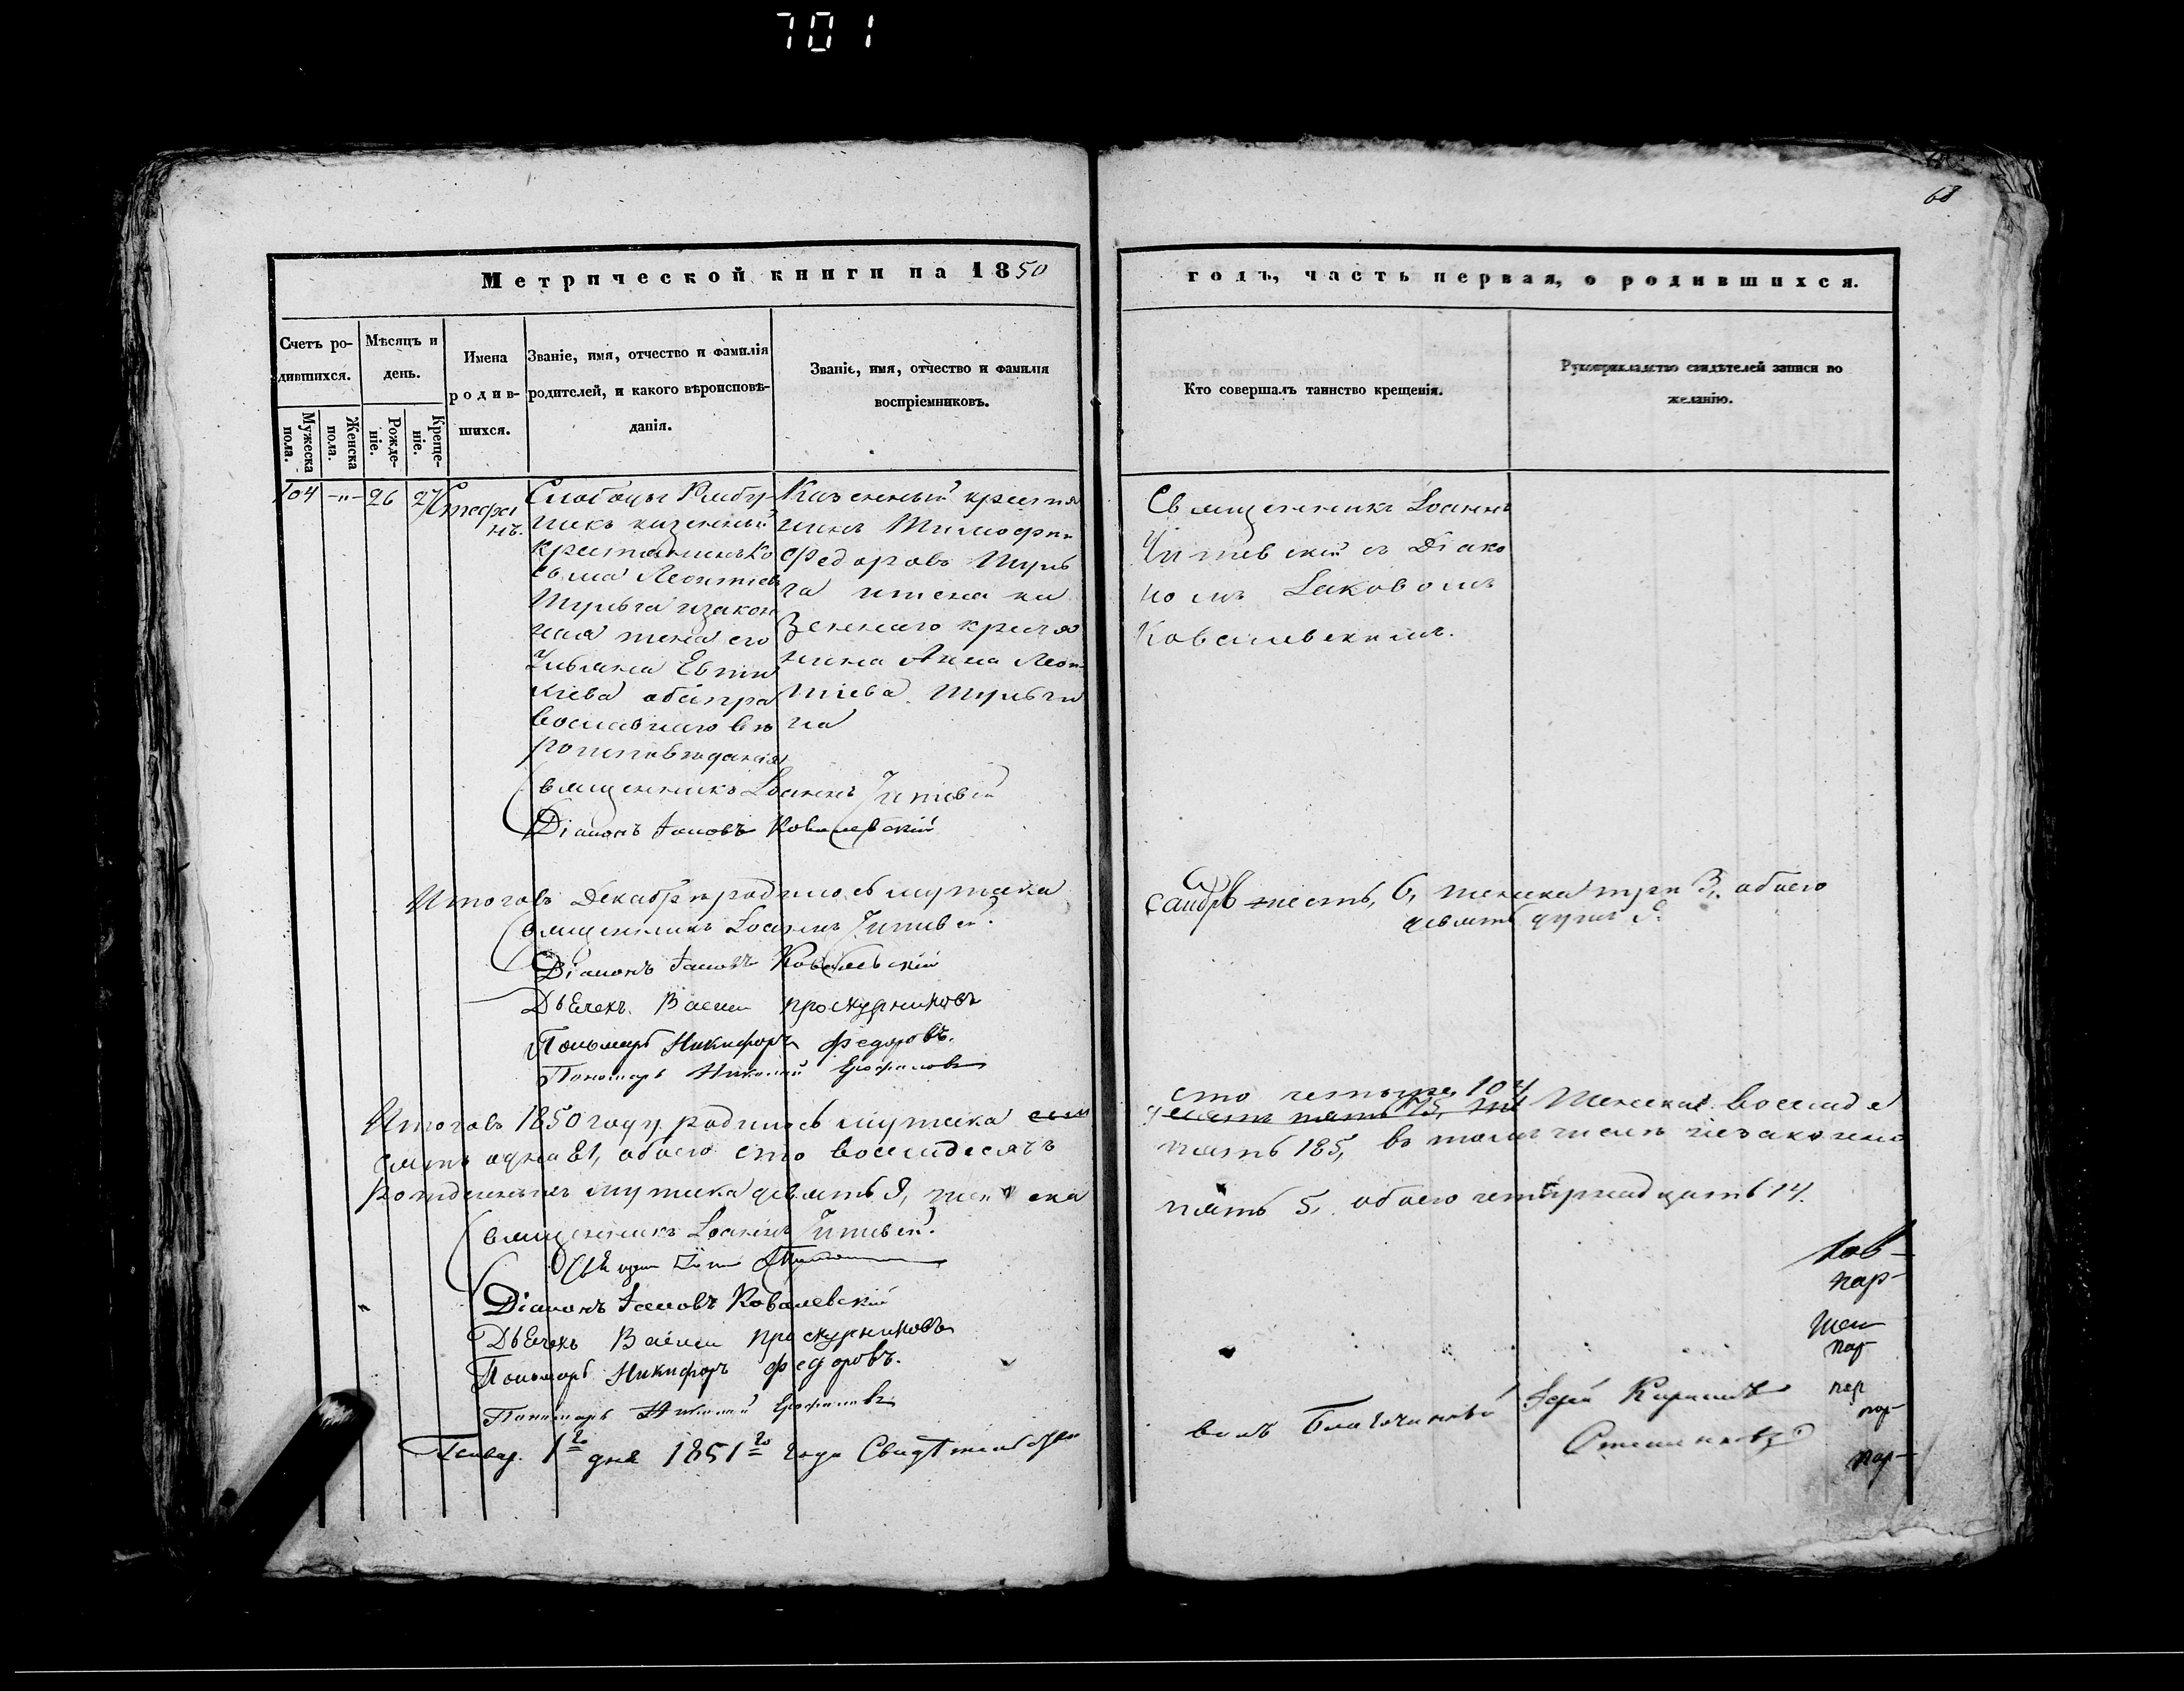 701
68
Метрической книги на 1850
годъ, часть первая, о родившихся.
Счетъ ро-
дившихся.
Мужеска
пола.
Женска
пола.
Мѣсяцъ и
день.
Рожде-
ніе.
Креще-
ніе.
Имена
родив-
шихся.
Званіе, имя, отчество и фамилія
родителей, и какого вѣроисповѣ-
данія.
Званіе, имя, отчество и фамилія
воспріемниковъ.
Кто совершалъ таинство крещенія.
Рукоприкладство свидѣтелей записи по
желанію.
104 -"- 26 27
Стефа
нъ.
Слободы
казенный
крестьянинъ Ко
сьма Леонтіевъ
Шульга изакон
ная жена его
Ульяна Евти
хіева обаправ
вославнаго вѣ
роисповѣданія
Казенный крестья
нинъ Тимофей
Федоровъ Шуль
га ижена ка
зеннаго крестья
нина Анна Леон
тіева Шульги
на
Священникъ Іоаннъ
съ Діако
номъ Іаковомъ
Ковалевскимъ.
Священникъ Іоаннъ
Діаконъ Іаковъ Ковалевскій
Итоговъ Декабрѣ родилось мужска
шесть, 6, женска три 3, обоего
девять душъ 9.
Священникъ Іоаннъ
Діаконъ Іаковъ Ковалевскій
Дьячекъ Васили Проскурниковъ
Пономарь Никифоръ Федоровъ.
Пономарь Николай
Итоговъ 1850 году родилось мужска
сто четыре 104
десять пять 175, Женска восемьде
сять одна 81, обоего сто восемдесятъ
пять 185, въ томъ числѣ незаконно
рожденныхъ мужска девять 9, женска
пять 5, обоего четырнадцать 14.
Священникъ Іоаннъ
Діаконъ Іаковъ Ковалевскій
Дьячекъ Васили Проскурниковъ
Пономарь Никифоръ Федоровъ.
Пономарь Николай
Генвар. 1го дня 1851го года Свидѣтельство
валъ Благочинный Іерей Кириллъ